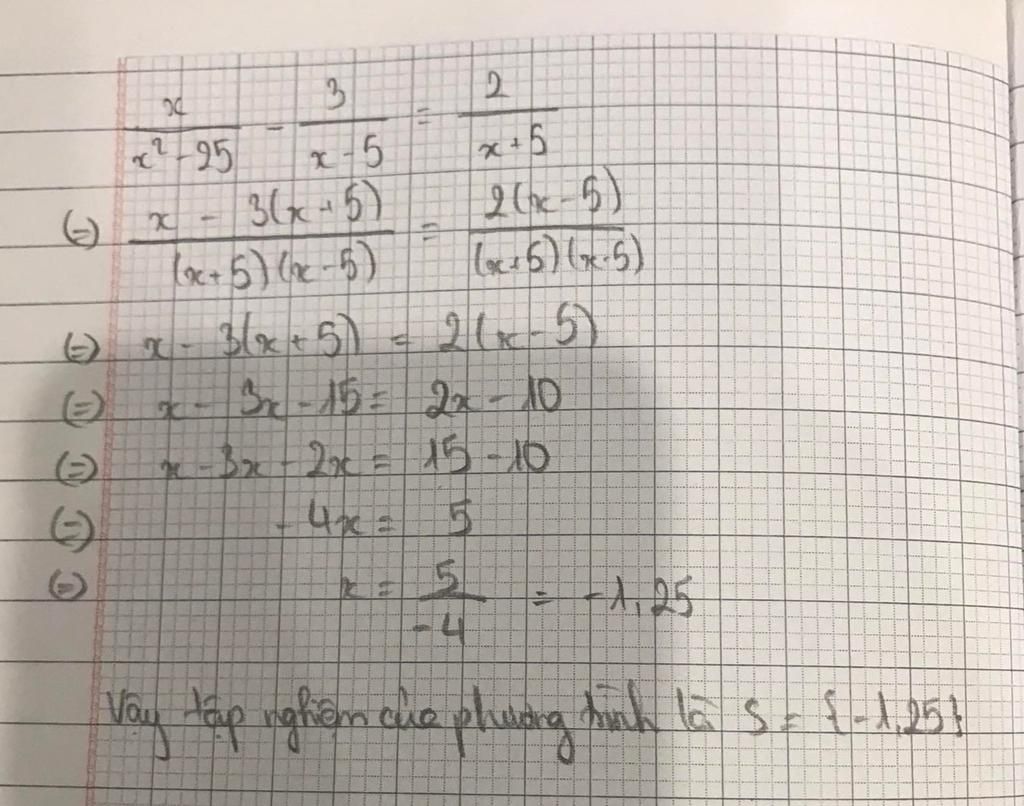 x/(x² - 25) - 3/(x - 5) = 2/(x + 5)
(=) (x - 3(x + 5))/((x + 5)(x - 5)) = 2(x - 5)/((x + 5)(x - 5))
(=) x - 3(x + 5) = 2(x - 5)
(=) x - 3x - 15 = 2x - 10
(=) x - 3x - 2x = 15 - 10
(=) - 4x = 5
(=) x = 5/-4 = -1,25
Vậy tập nghiệm của phương trình là S = {-1,25}